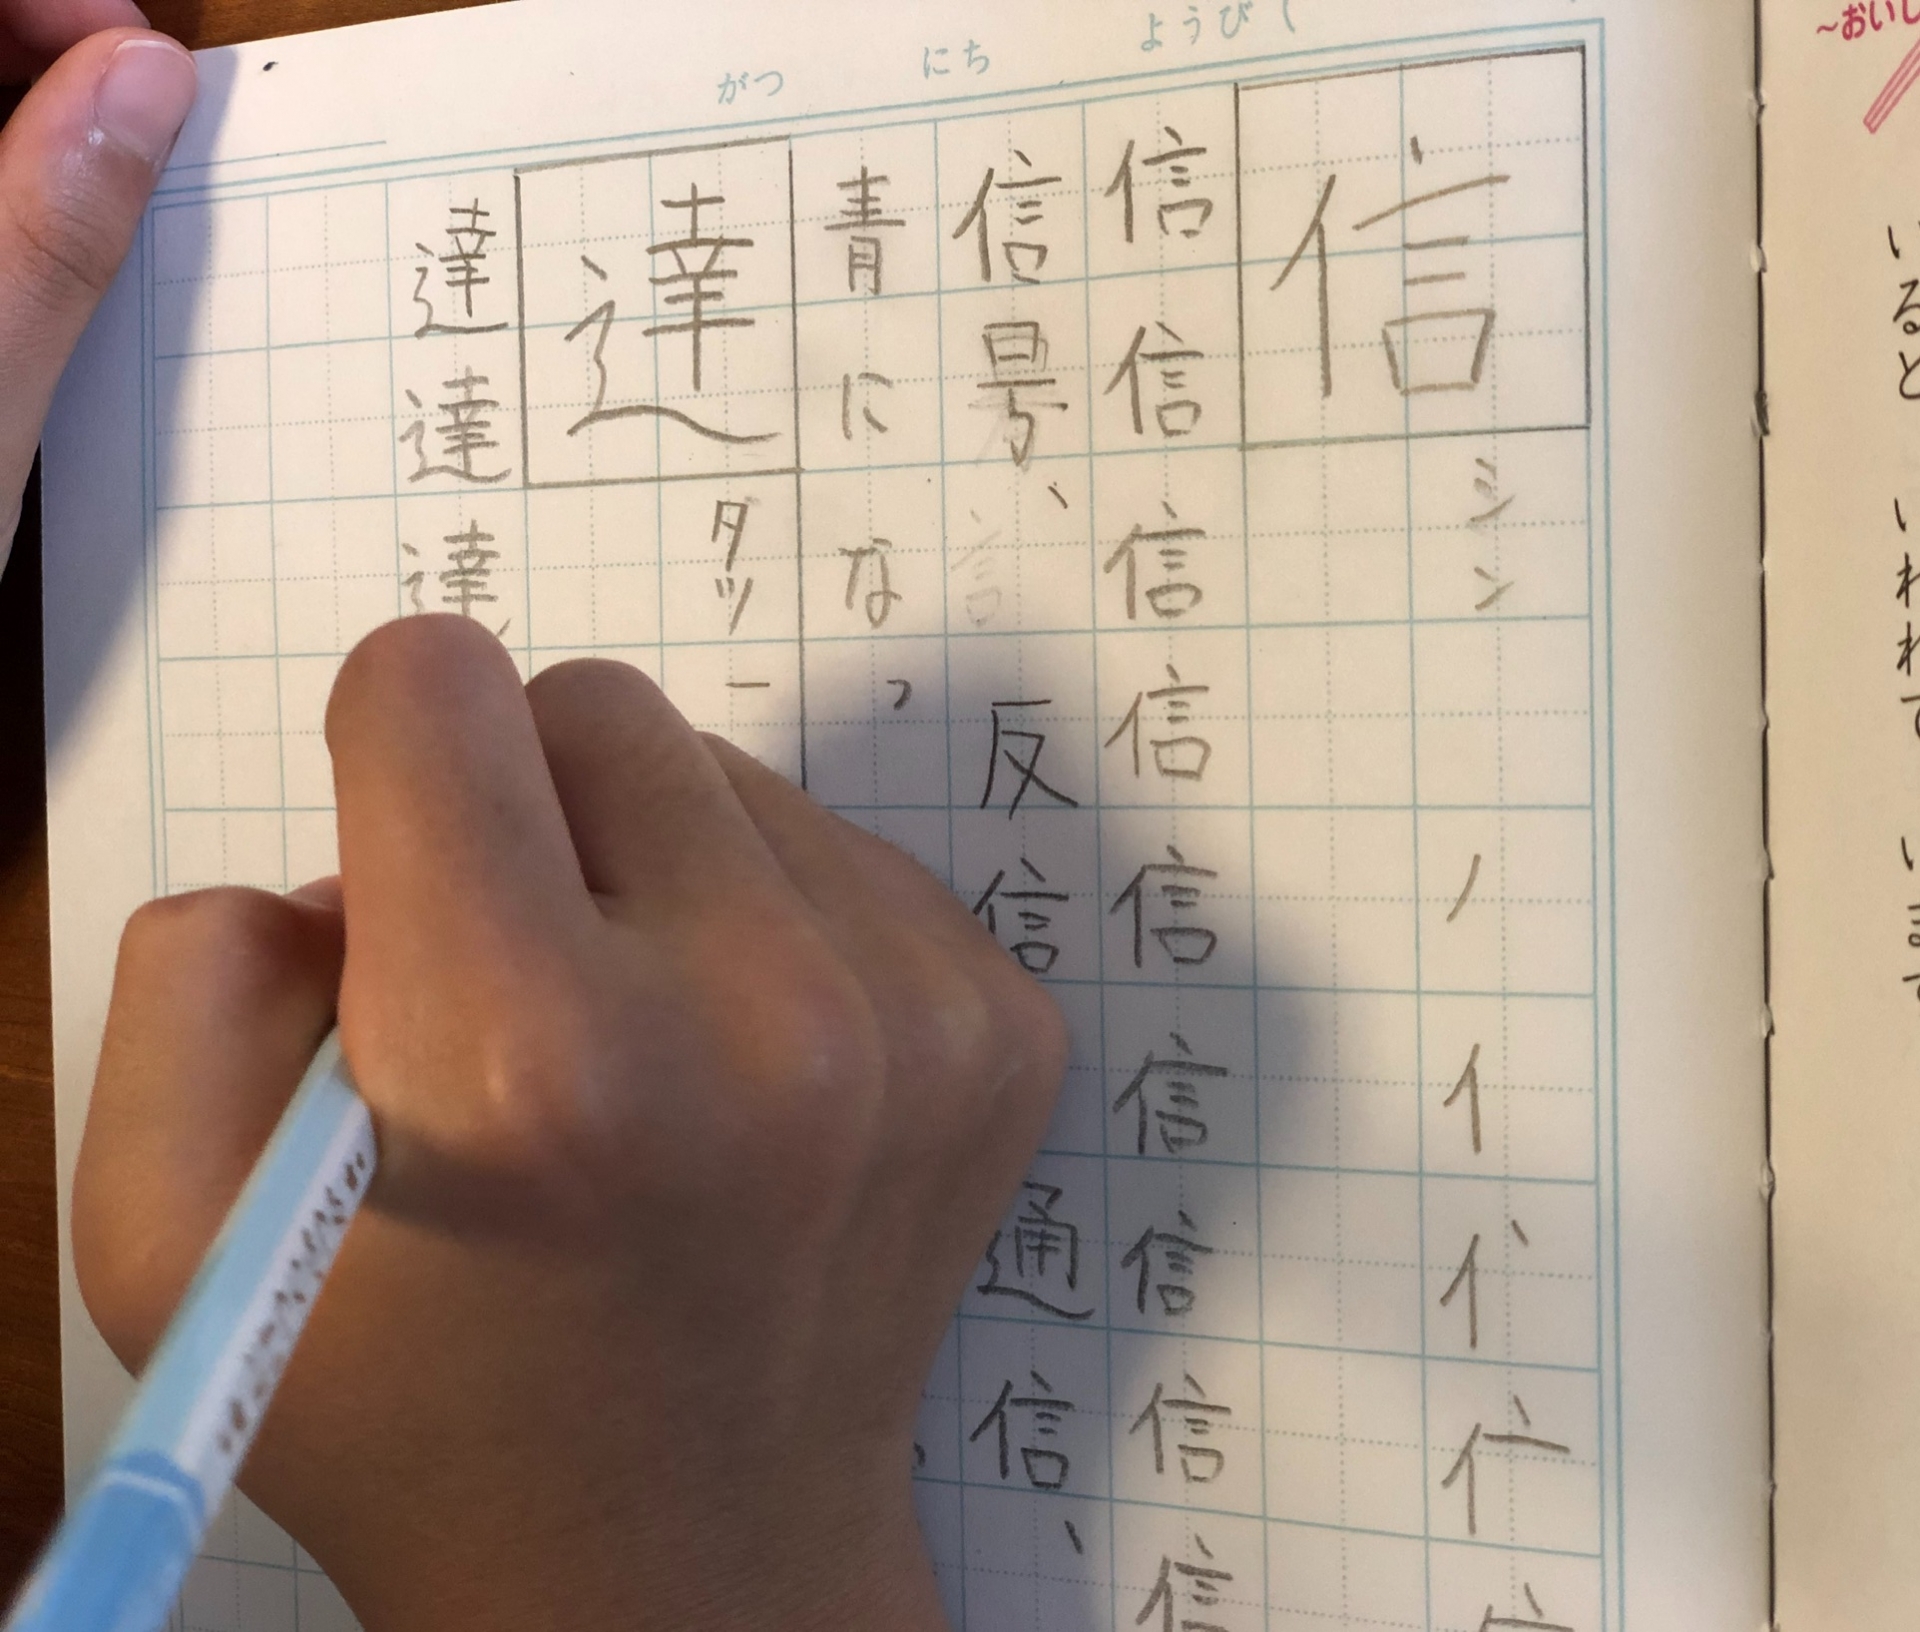 がつ にち ようび
信
シン
ノイ
信信信信信信信信信
信号、反信
通信、
青になっ
達
タツ
達達達
~おいし
いるといわれてい